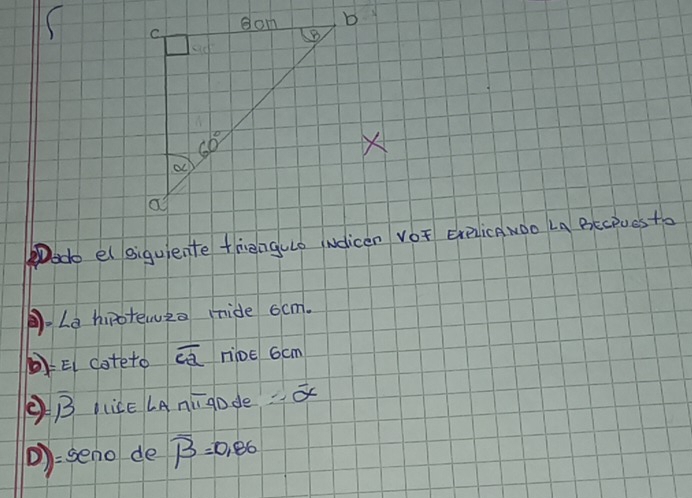 c 8cm b
β
60°
α
a
X
2)Dado el siguiente triangulo indicen VOF EXPLICANDO LA
a)- La hipotenuza mide 6cm.
b)= EL cateto ca miDE 6cm
c)= β MiDE LA mitaD de α
D)= seno de β = 0,86